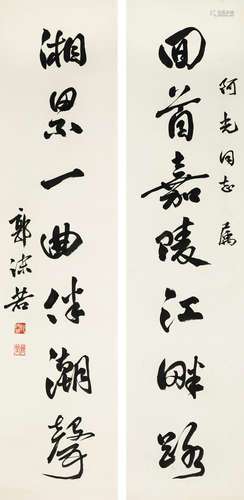 何光同志属
回首嘉陵江畔路
湘累一曲伴潮声
郭沫若